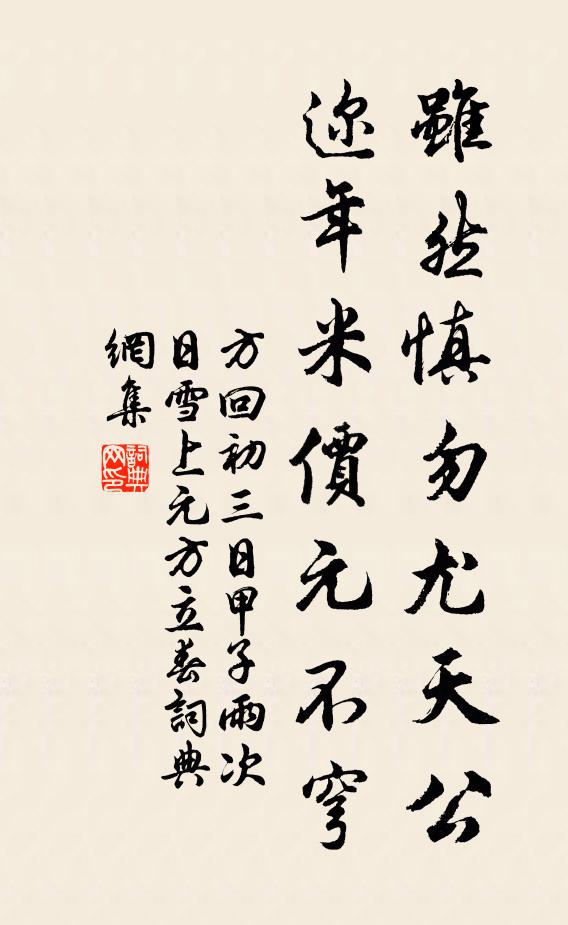 雖然慎勿尤天公
迩年米價元不穹
方回初三日甲子雨次
日雪上元方立春詞典
網集
詞典
网印